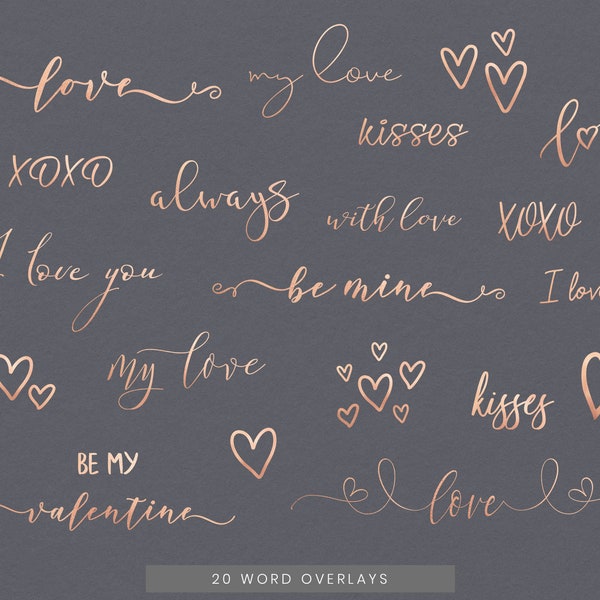 love
my love
kisses
XOXO
always
with love
XOXO
I love you
be mine
I lov
my love
kisses
BE MY
valentine
love
20 WORD OVERLAYS